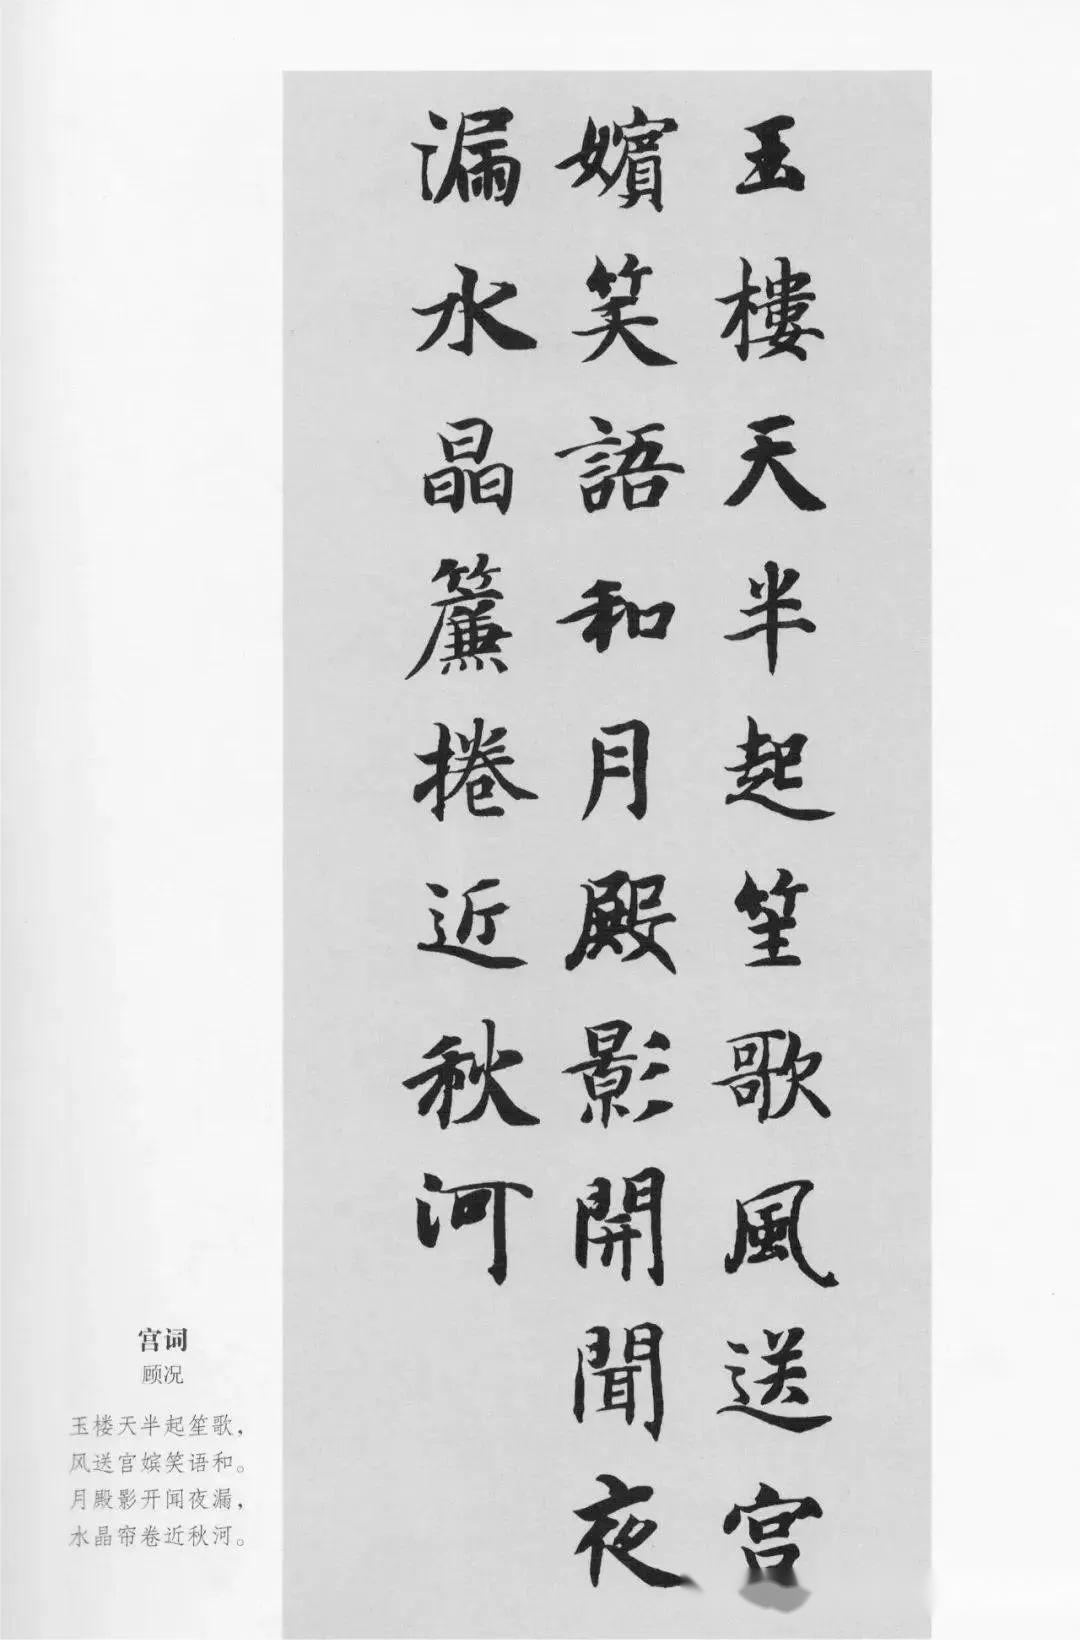 玉樓天半起笙歌風送宮
嬪笑語和月殿影開聞夜
漏水晶簾捲近秋河
宫词
顾况
玉楼天半起笙歌，
风送宫嫔笑语和。
月殿影开闻夜漏，
水晶帘卷近秋河。